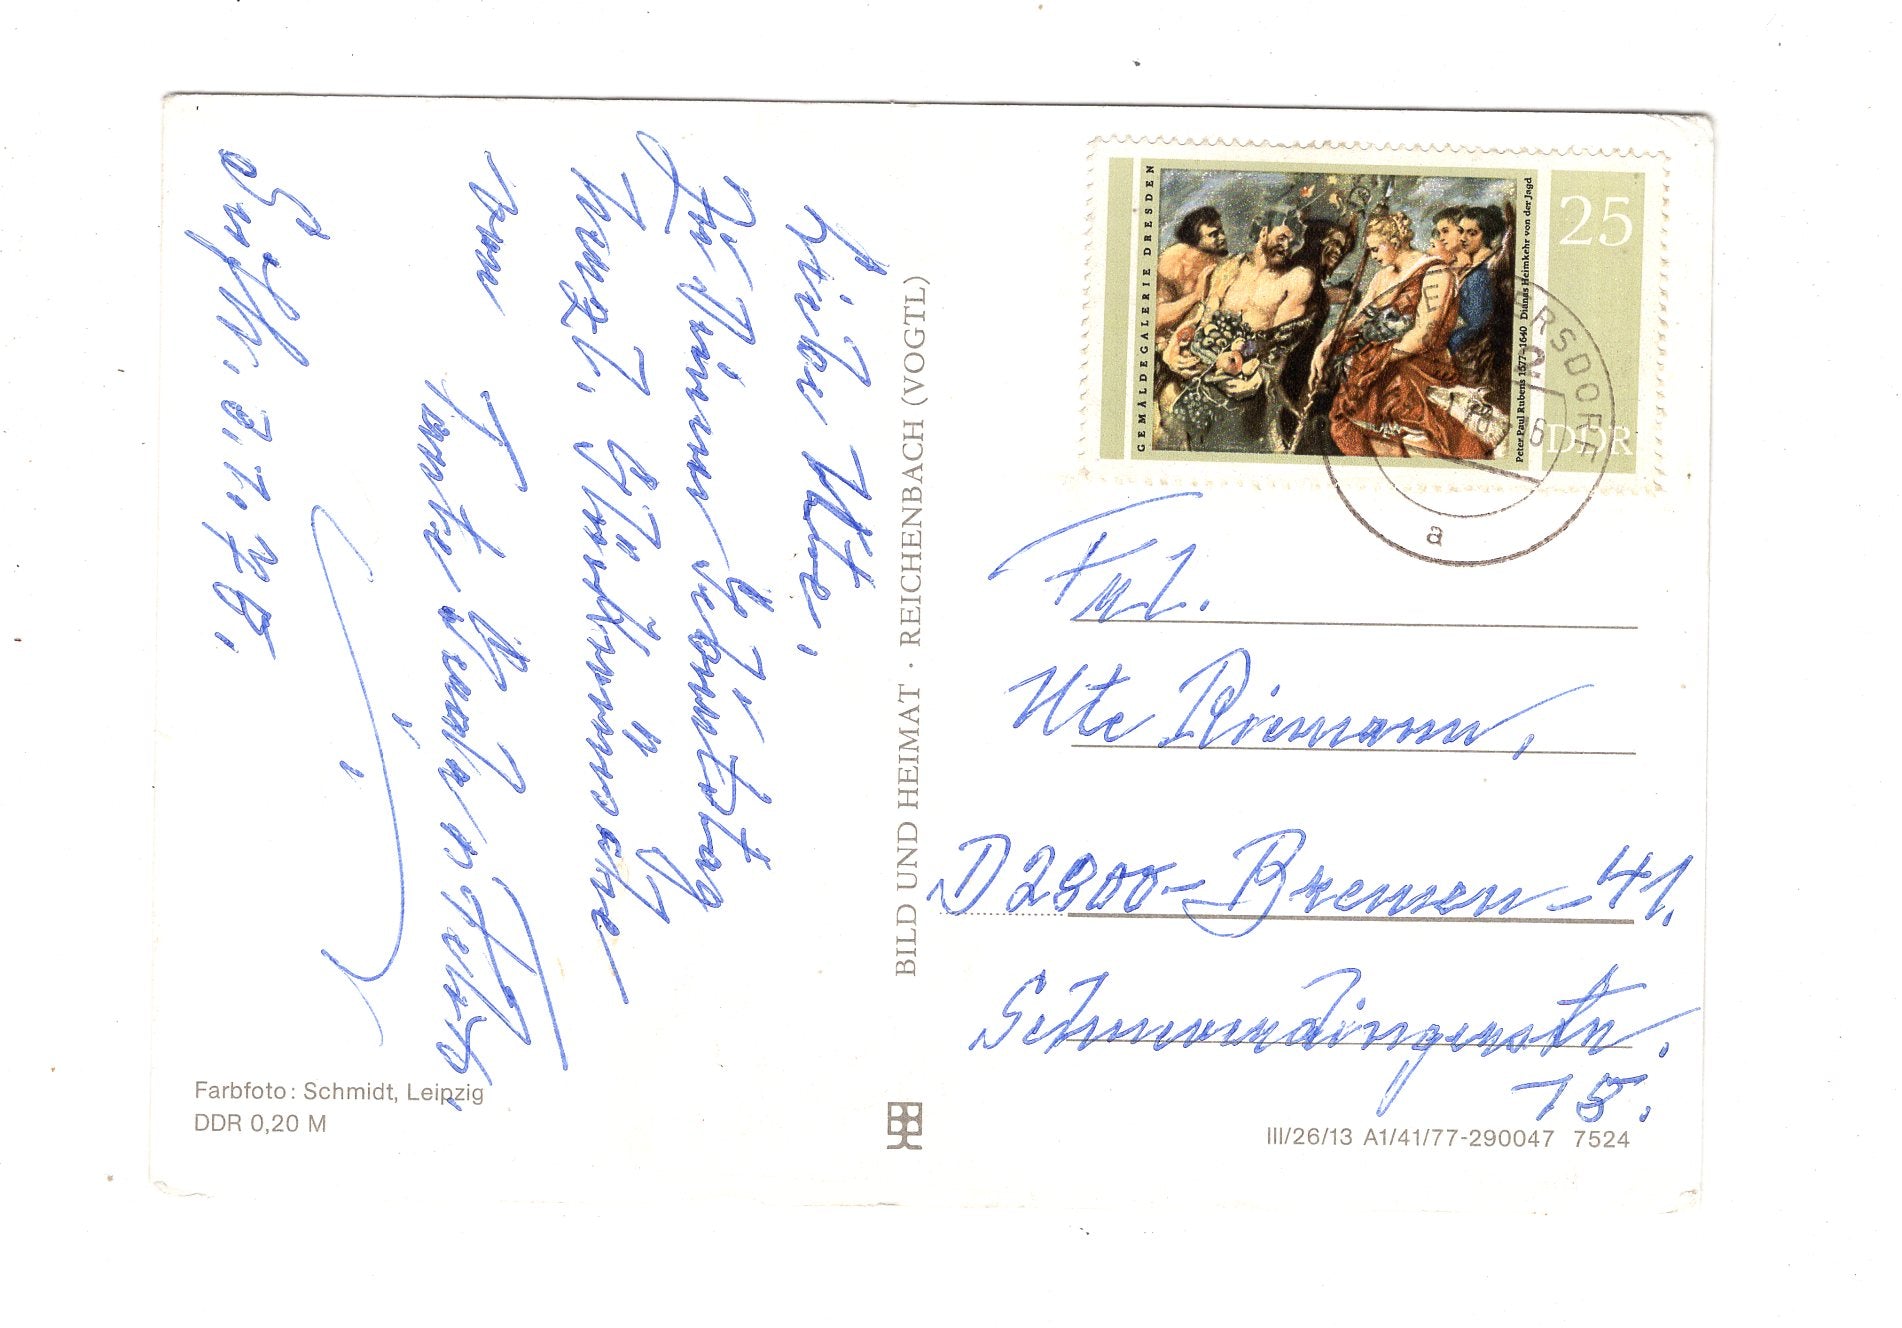 Liebe Ute,
Zu Deinem Geburtstag
herzl. Glückwünsche
von
Tante
7.78.
Farbfoto: Schmidt, Leipzig
DDR 0,20 M
BILD UND HEIMAT · REICHENBACH (VOGTL)
GEMÄLDEGALERIE DRESDEN
Peter Paul Rubens 1577–1640 Dianas Heimkehr von der Jagd
25
DDR
RSDORF
a
Frl.
Ute Riemann,
D 2800-Bremen-41.
Schneverdingerstr.
15.
III/26/13 A1/41/77-290047 7524